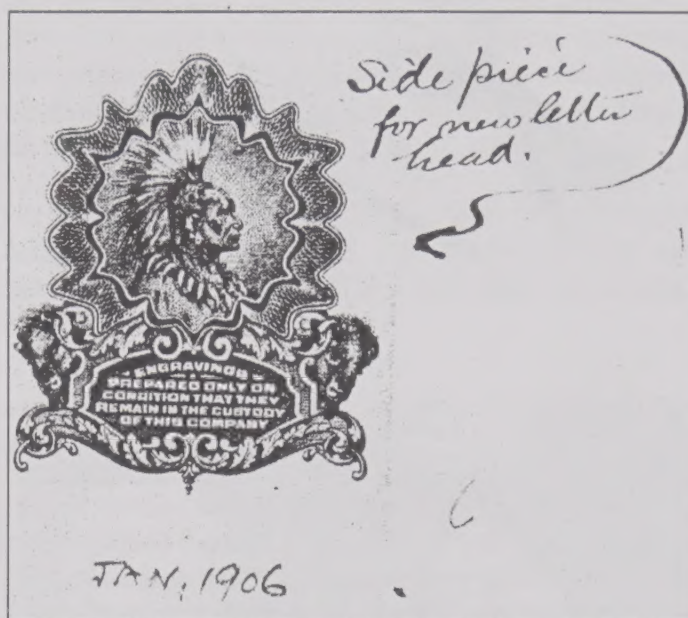 Side piece
for new letter
head.
ENGRAVINGS
PREPARED ONLY ON
CONDITION THAT THEY
REMAIN IN THE CUSTODY
OF THIS COMPANY
JAN, 1906